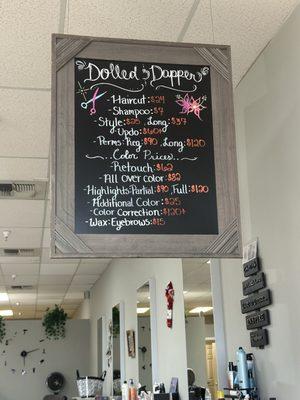 Dolled & Dapper
-Haircut $24
-Shampoo $7
-Style: $25, Long: $37
Updo $60+
-Perms: Reg: $90, Long: $120
Color Prices:
-Retouch $62
-All Over color: $82
-Highlights: Partial: $90, Full: $120
-Additional Color $25
-Color Correction $120+
-Wax: Eyebrows: $15